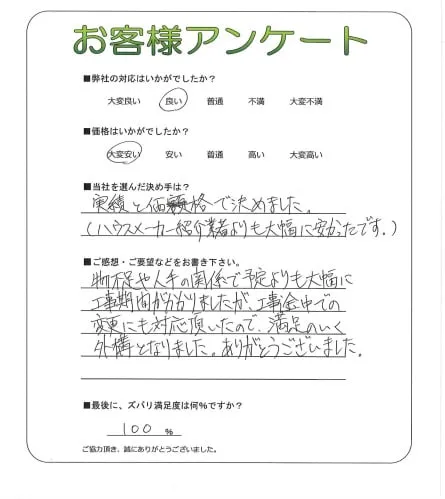 お客様アンケート
■弊社の対応はいかがでしたか?
大変良い 良い 普通 不満 大変不満
■価格はいかがでしたか?
大変安い 安い 普通 高い 大変高い
■当社を選んだ決め手は?
実績と価格で決めました。
(ハウスメーカー紹介業者よりも大幅に安かったです。)
■ご感想・ご要望などをお書き下さい。
物不足や人手の関係で予定よりも大幅に
工事期間がかかりましたが、工事途中での
変更にも対応頂いたので、満足のいく
外構となりました。ありがとうございました。
■最後に、ズバリ満足度は何%ですか?
100 %
ご協力頂き、誠にありがとうございました。